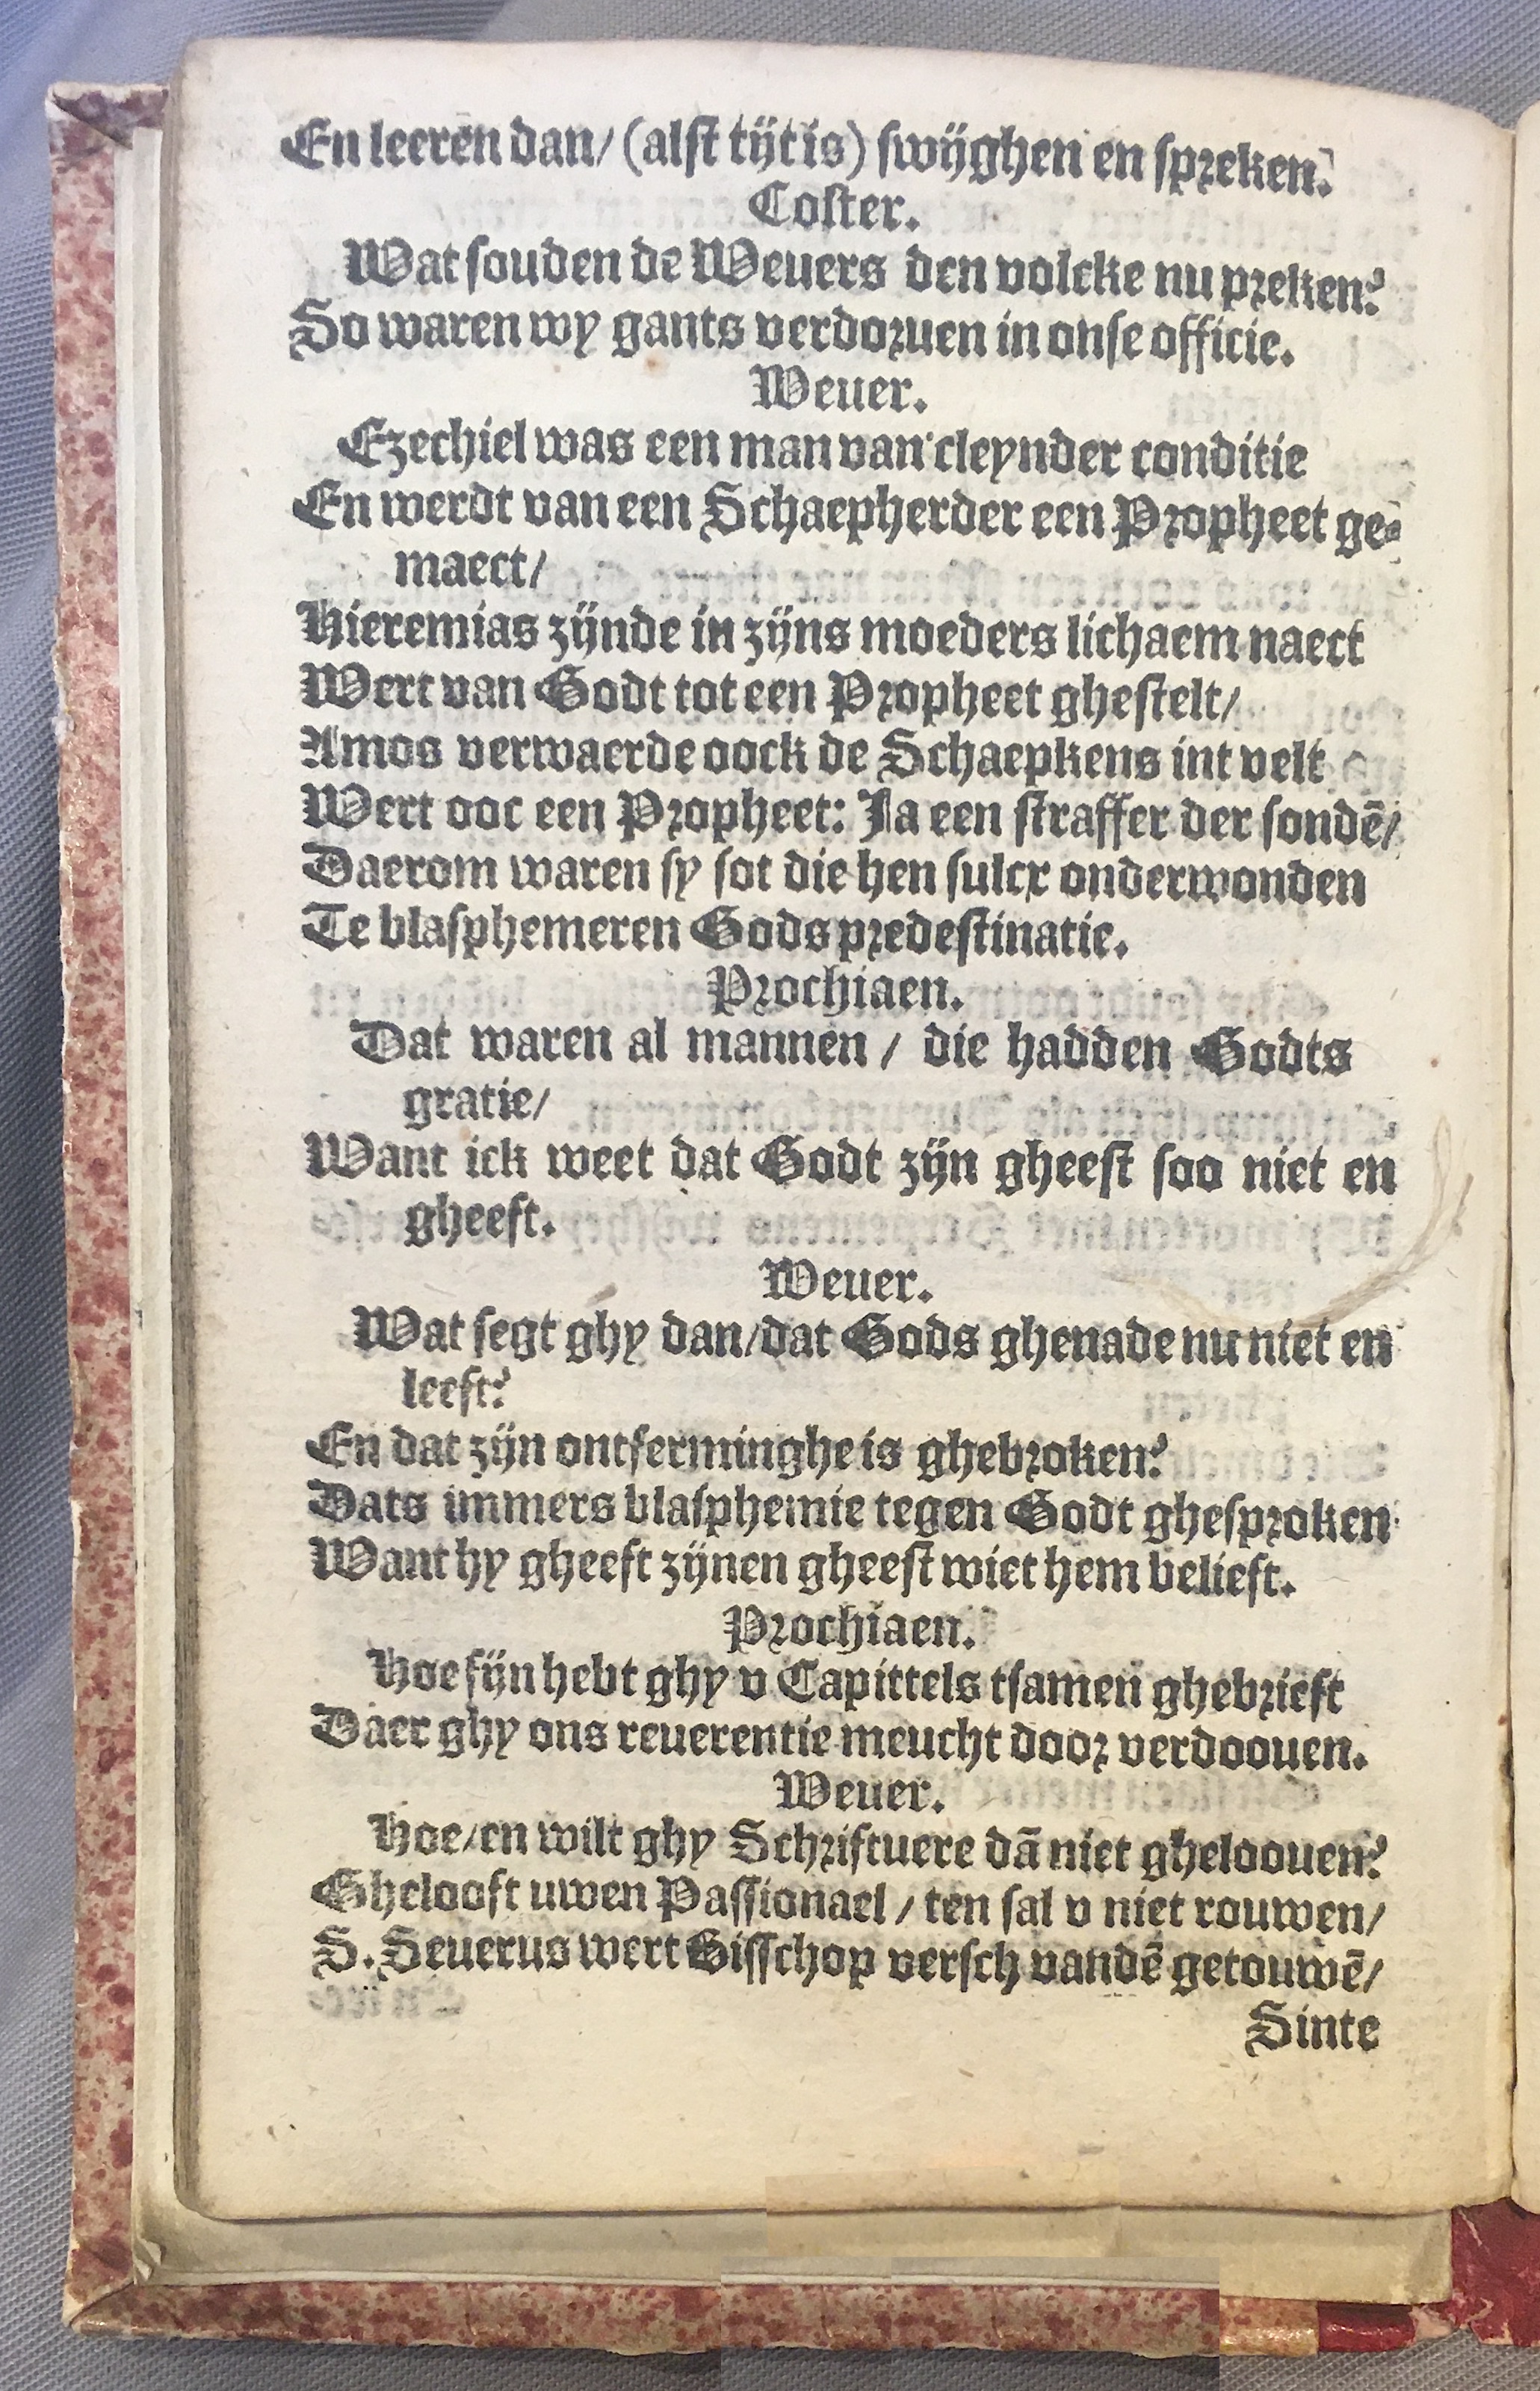 En leeren dan/ (alst tijt is) swijghen en spreken.
Coster.
Wat souden de Weuers den volcke nu preken?
So waren wy gants verdoruen in onse officie.
Weuer.
Ezechiel was een man van cleynder conditie
En werdt van een Schaepherder een Propheet ge-
maect/
Hieremias zijnde in zijns moeders lichaem naect
Wert van Godt tot een Propheet ghestelt/
Amos verwaerde oock de Schaepkens int velt
Wert ooc een Propheet: Ja een straffer der sondē/
Daerom waren sy sot die hen sulcx onderwonden
Te blasphemeren Gods predestinatie.
Prochiaen.
Dat waren al mannen / die hadden Godts
gratie/
Want ick weet dat Godt zijn gheest soo niet en
gheeft.
Weuer.
Wat segt ghy dan/dat Gods ghenade nu niet en
leeft?
En dat zijn ontferminghe is ghebroken?
Dats immers blasphemie tegen Godt ghesproken
Want hy gheeft zijnen gheest wiet hem belieft.
Prochiaen.
Hoe fijn hebt ghy v Capittels tsamen ghebrieft
Daer ghy ons reuerentie meucht door verdoouen.
Weuer.
Hoe/en wilt ghy Schriftuere dā niet gheloouen?
Ghelooft uwen Passionael / ten sal v niet rouwen/
S. Seuerus wert Bisschop versch vandē getouwē/
Sinte